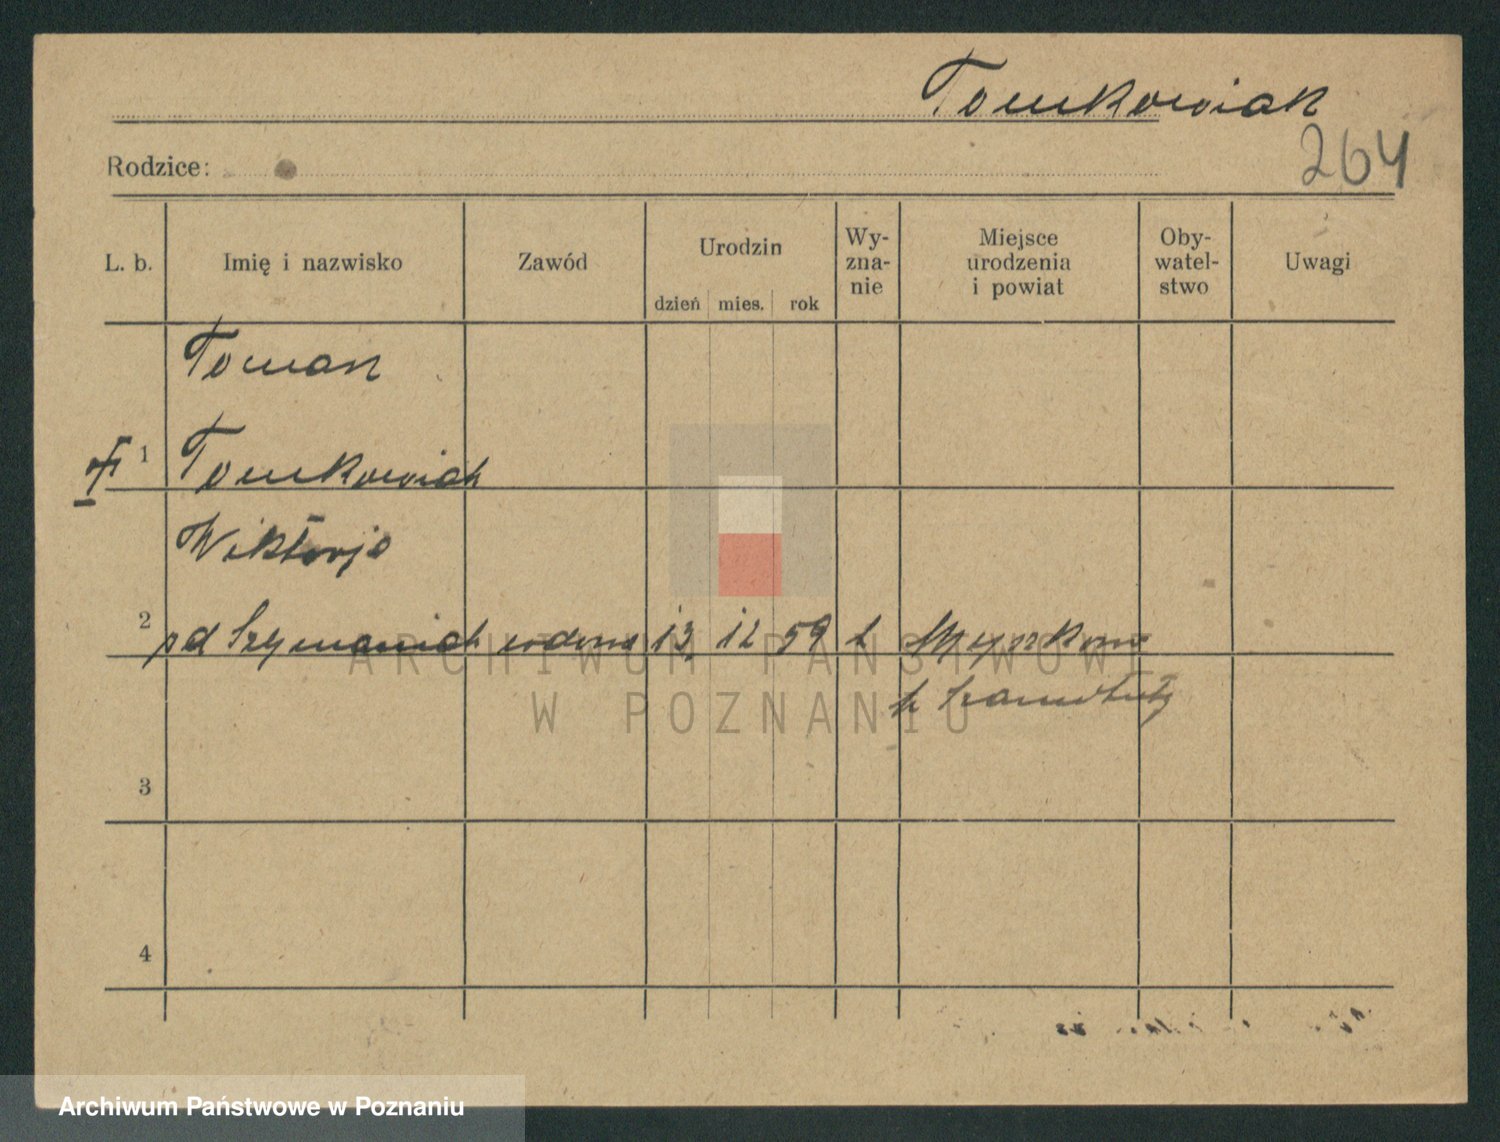 Tomkowiak
264
Rodzice:
L. b. Imię i nazwisko Zawód Urodzin dzień mies. rok Wy-zna-nie Miejsce urodzenia i powiat Oby-watel-stwo Uwagi
Toman
1 Tomkowiak
Wiktorja
2 zd Szymaniak wdowa 13. 12 59 k
p Szamotuły
3
4
ARCHIWUM PAŃSTWOWE
W POZNANIU
Archiwum Państwowe w Poznaniu